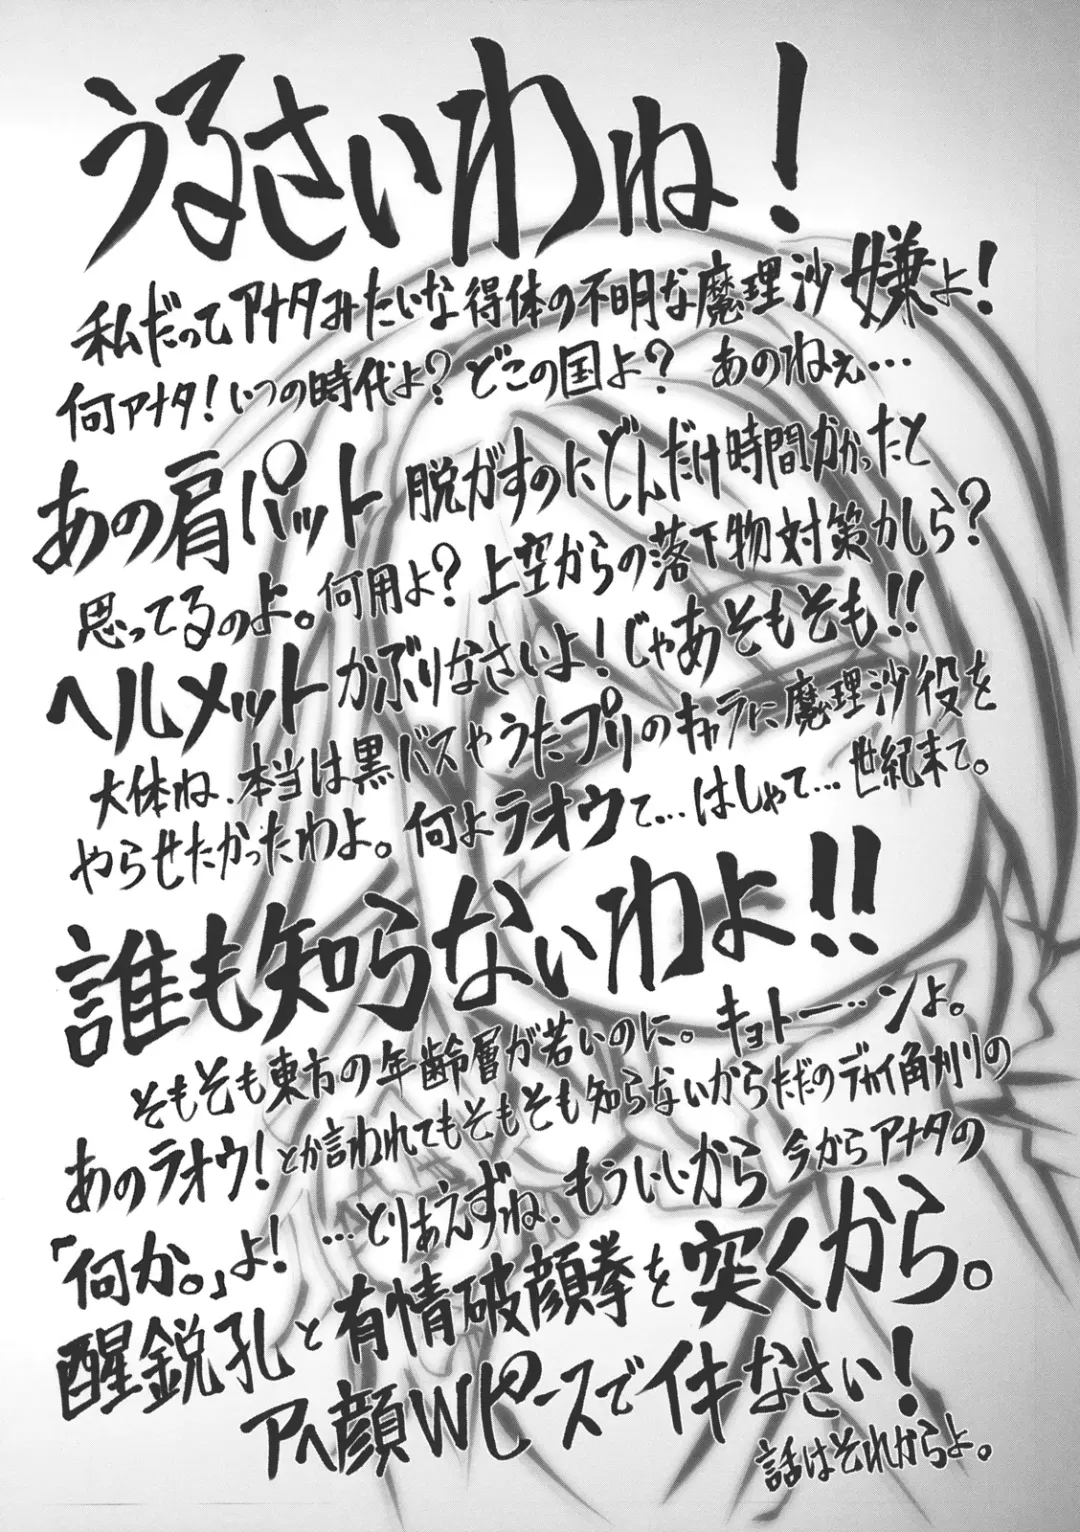 うるさいわね！
私だってアナタみたいな得体の不明な魔理沙嫌よ！
何アナタ！いつの時代よ？どこの国よ？ あのねぇ…
あの肩パット脱がすのにどんだけ時間かかったと
思ってるのよ。何用よ？上空からの落下物対策かしら？
ヘルメットかぶりなさいよ！じゃあそもそも!!
大体ね、本当は黒バスやうたプリのキャラに魔理沙役を
やらせたかったわよ。何よラオウて…はしゃて…世紀末て。
誰も知らないわよ!!
そもそも東方の年齢層が若いのに。キョトー…ンよ。
あのラオウ！とか言われてもそもそも知らないからただのデカイ角刈りの
「何か。」よ！…とりあえずね、もういいから今からアナタの
醒鋭孔と有情破顔拳を突くから。
アへ顔Wピースでイキなさい！
話はそれからよ。